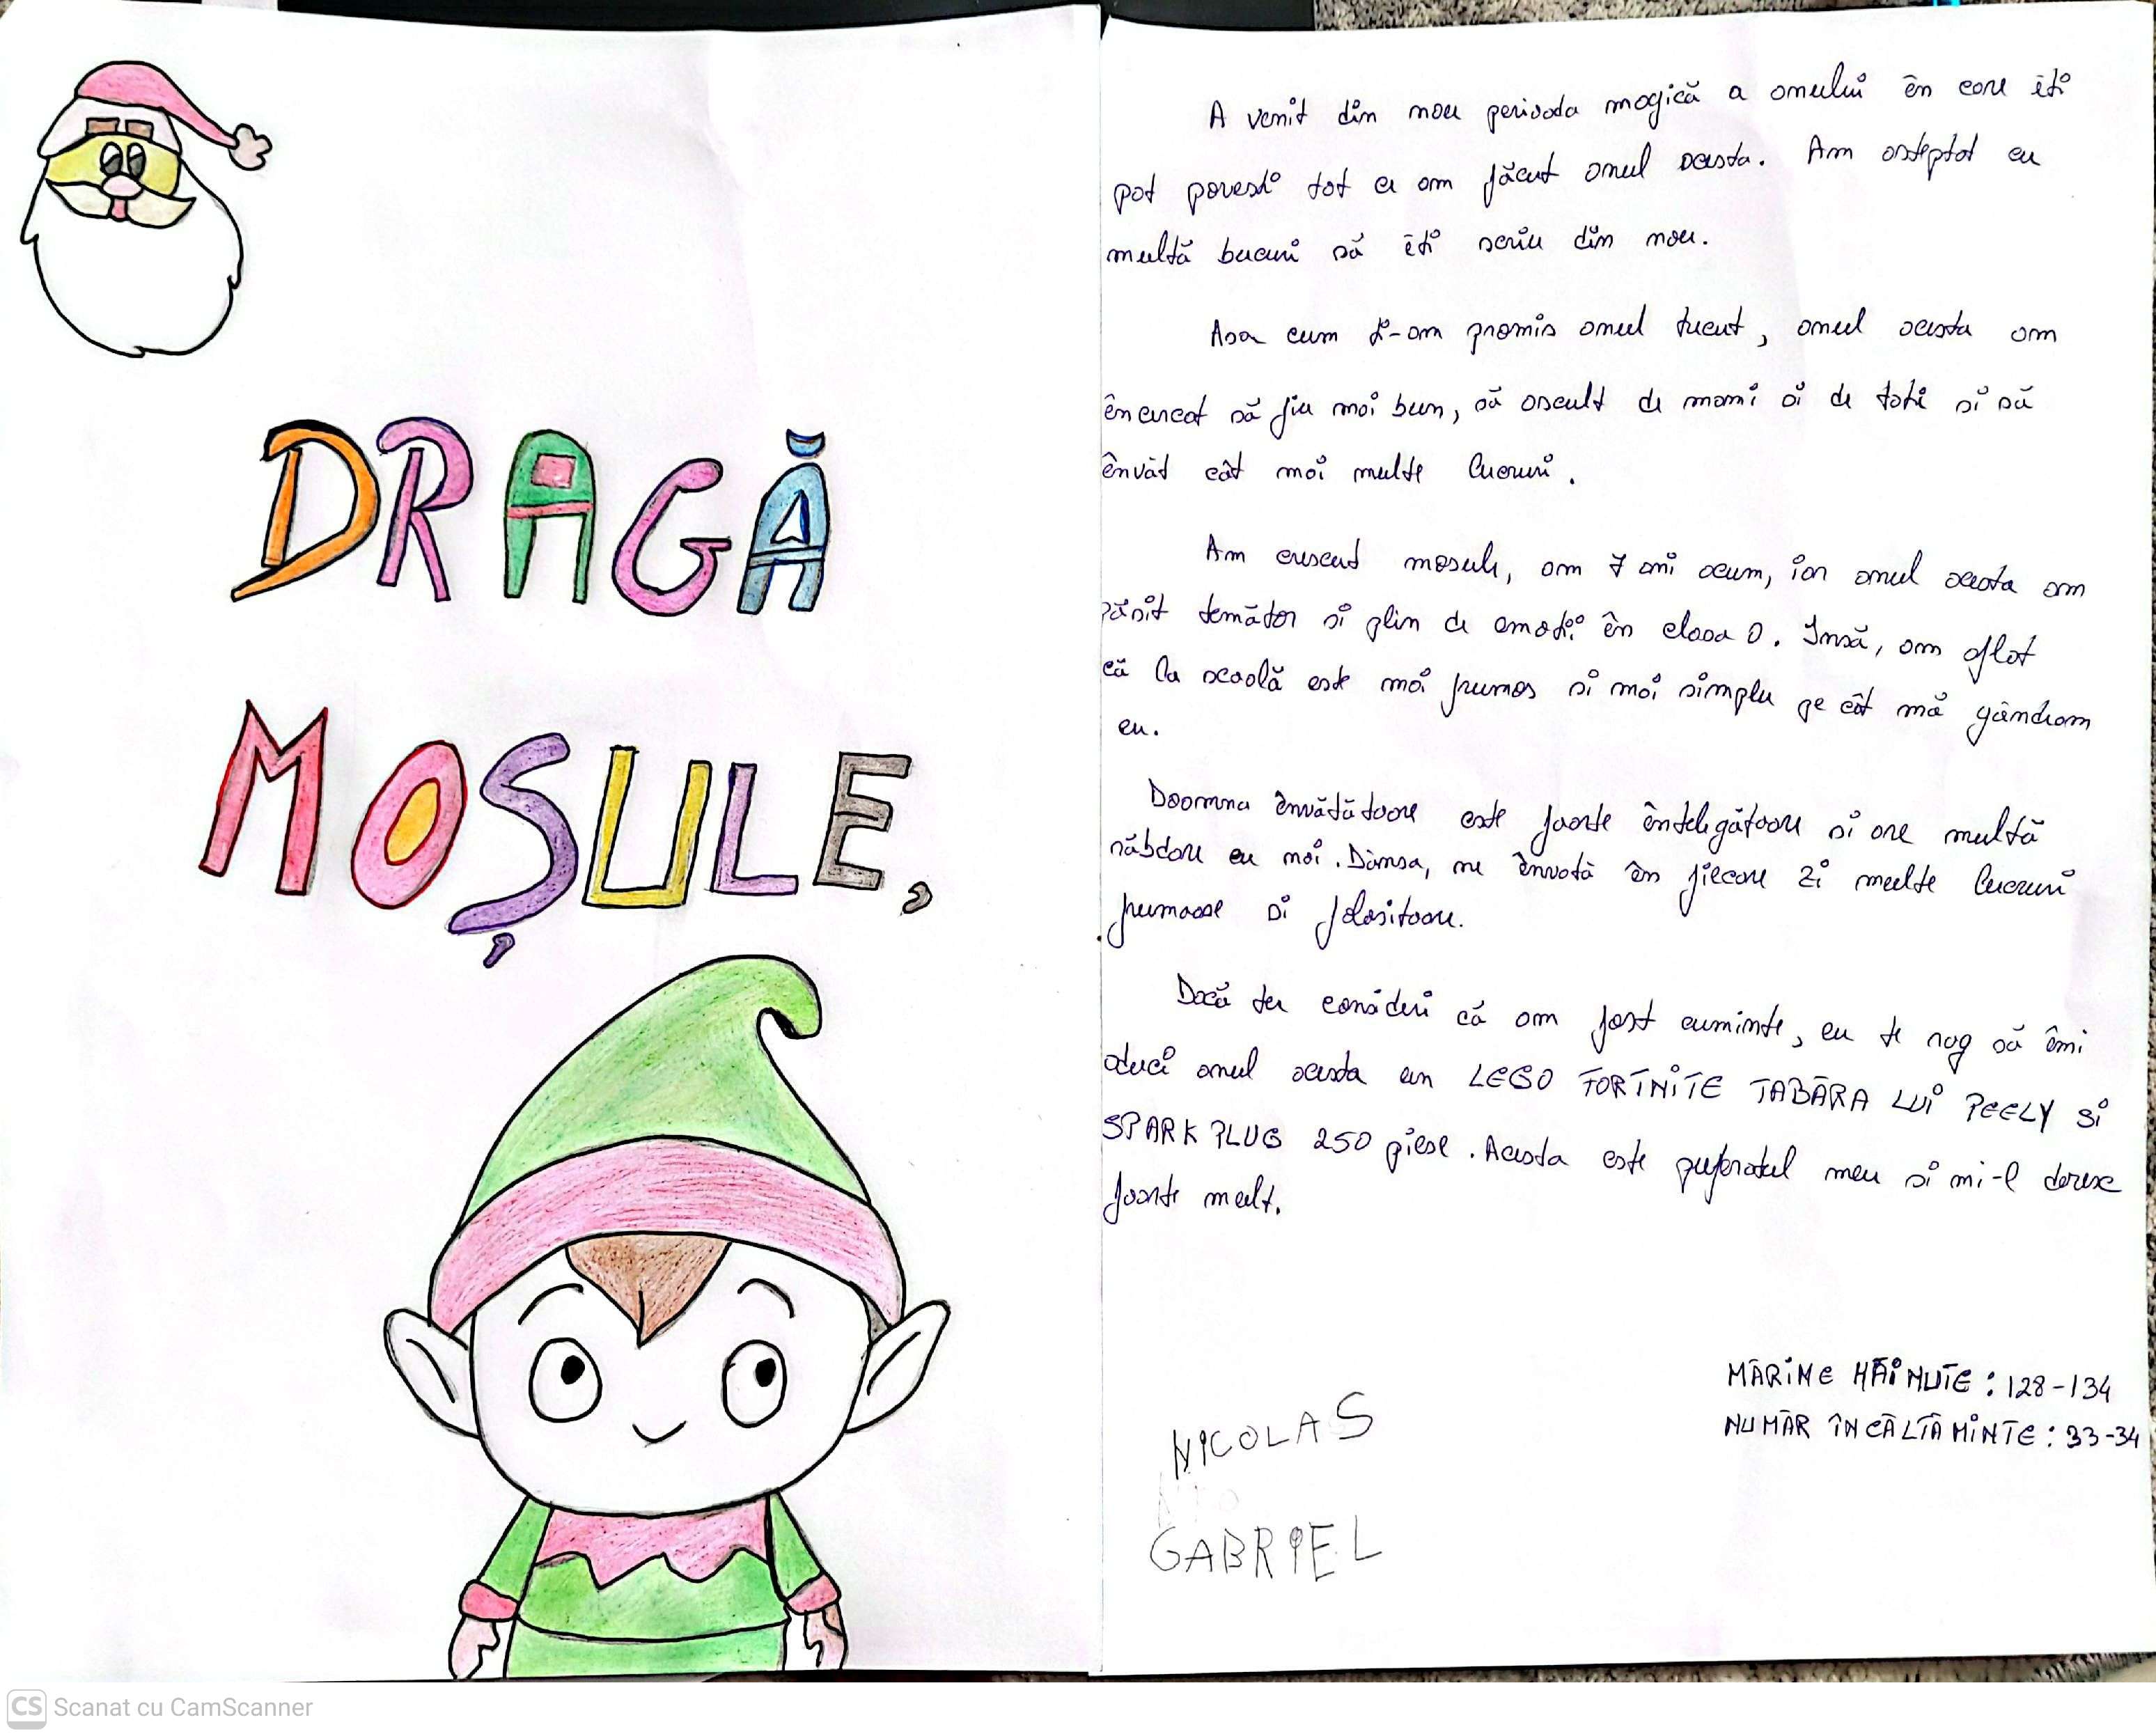 DRAGĂ
MOȘULE,
A venit din nou perioada magică a anului în care îți
pot povesti tot ce am făcut anul acesta. Am așteptat cu
multă bucurie să îți scriu din nou.
Așa cum ți-am promis anul trecut, anul acesta am
încercat să fiu mai bun, să ascult de mami și de toti și să
învăț cât mai multe lucruri.
Am crescut mosule, am 7 ani acum, iar anul acesta am
pășit temător si plin de emoții în clasa 0. Însă, am aflat
că la scoală este mai frumos si mai simplu pe cât mă gândeam
eu.
Doamna învătătoare este foarte întelegătoare si are multă
răbdare cu noi. Dânsa, ne învată în fiecare zi multe lucruri
frumoase si folositoare.
Dacă tu consideri că am fost cuminte, eu te rog să îmi
aduci anul acesta un LEGO FORTNITE TABĂRA LUI PEELY SI
SPARK PLUG 250 piese. Acesta este preferatul meu si mi-l doresc
foarte mult.
MĂRIME HĂINUTE: 128-134
NUMĂR ÎNCĂLTĂMINTE: 33-34
NICOLAS
GABRIEL
CS Scanat cu CamScanner